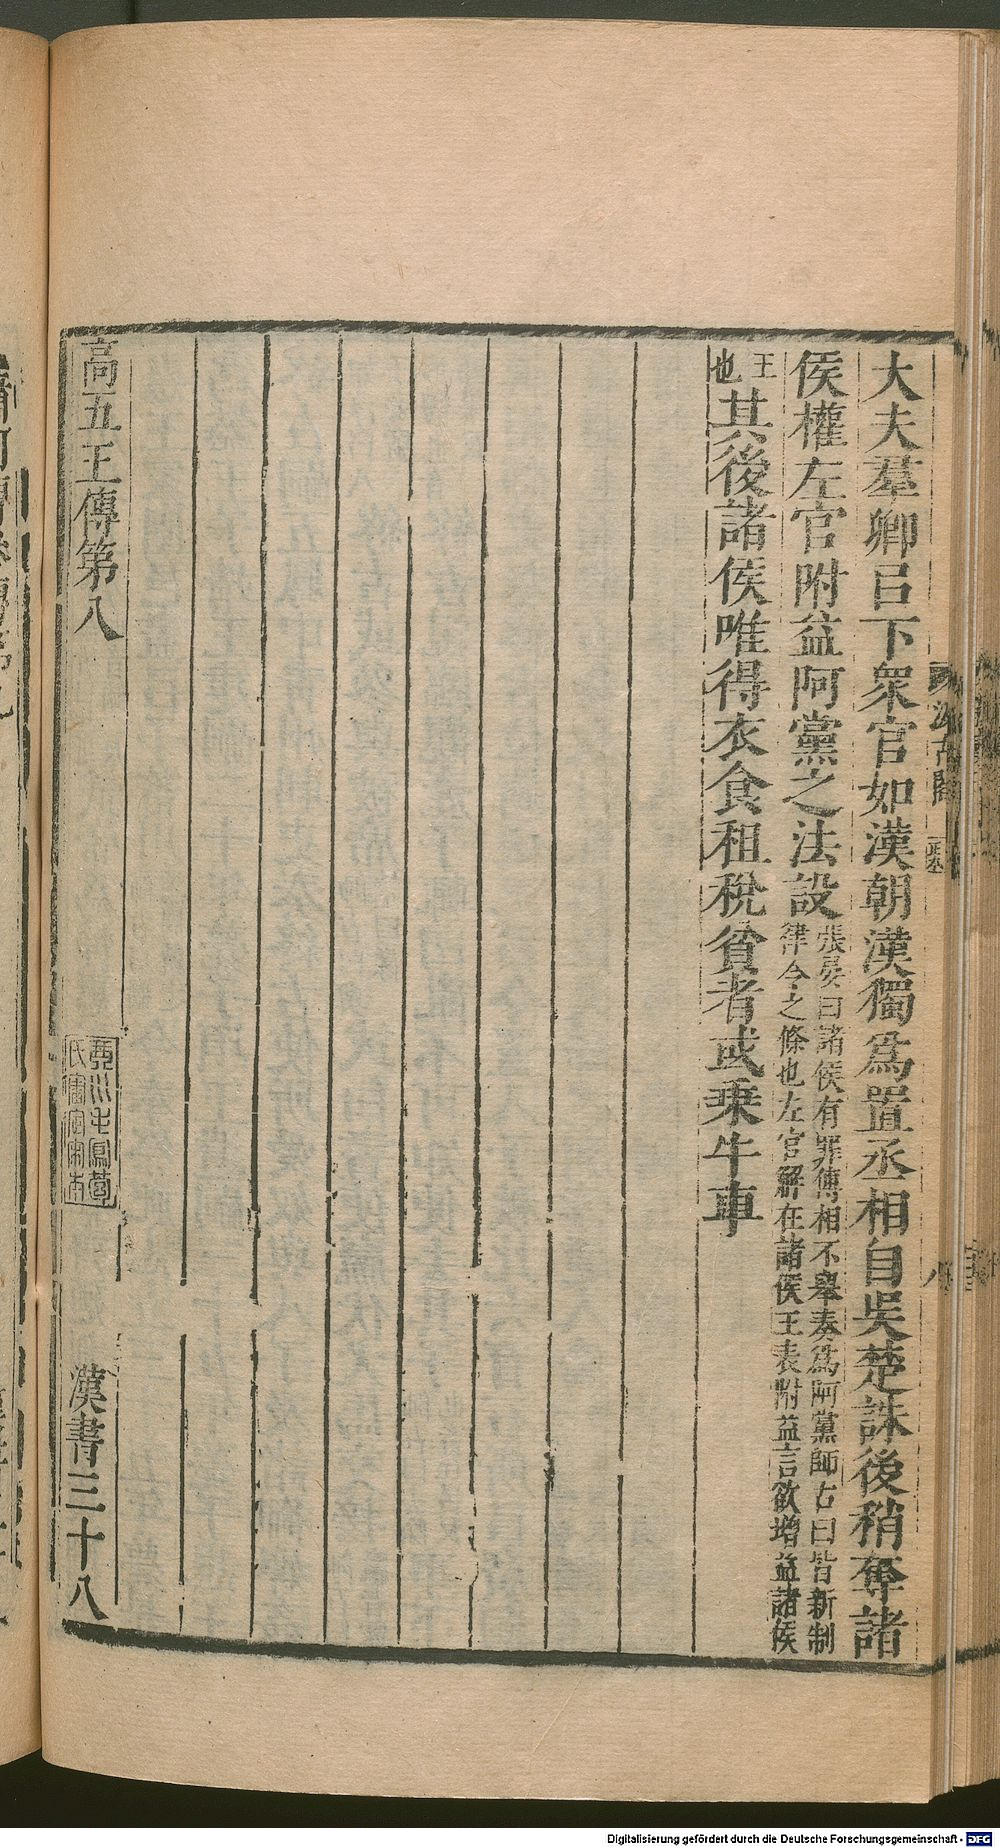 大夫羣卿㠯下衆官如漢朝漢獨爲置丞相自吳楚誅後稍奪諸
侯權左官附益阿黨之法設
張晏曰諸侯有罪傅相不舉奏爲阿黨師古曰皆新制
律令之條也左官解在諸侯王表附益言欲增益諸侯
王
也
其後諸侯唯得衣食租稅貧者或乗牛車
高五王傳第八
漢書三十八
汲古閣
八
Digitalisierung gefördert durch die Deutsche Forschungsgemeinschaft - DFG